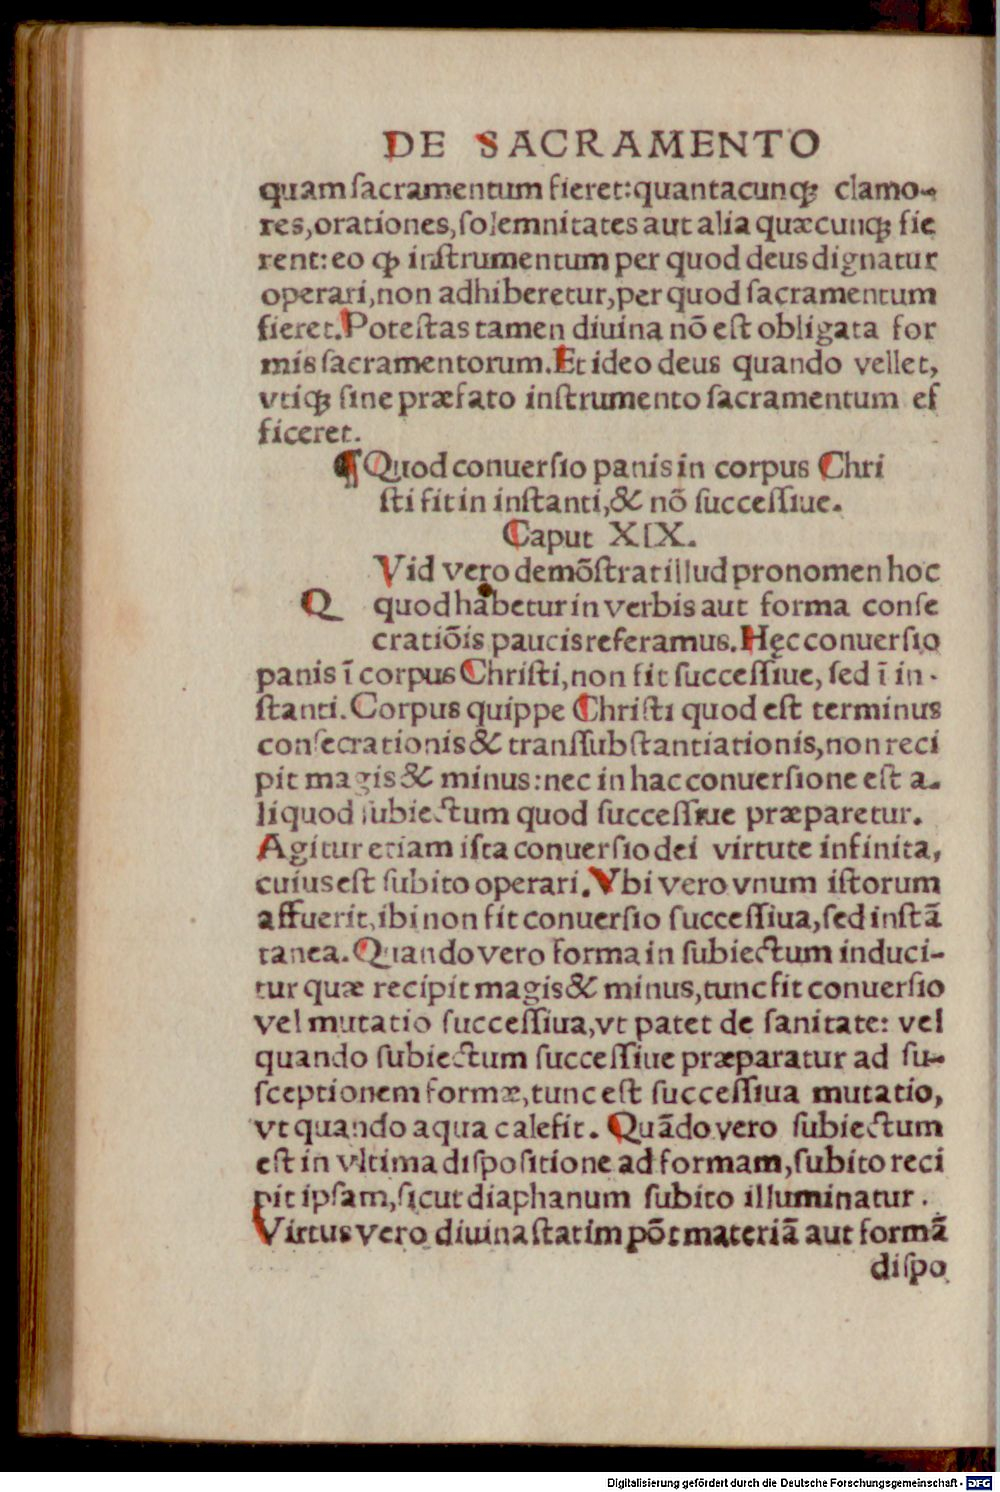 DE SACRAMENTO
quam ſacramentum fieret:quantacunqꝫ clamo-
res,orationes,ſolemnitates aut alia quæcunqꝫ fie
rent: eo ꝙ inſtrumentum per quod deus dignatur
operari,non adhiberetur,per quod ſacramentum
fieret.Poteſtas tamen diuina nō eſt obligata for
mis ſacramentorum.Et ideo deus quando vellet,
vtiqꝫ ſine præfato inſtrumento ſacramentum ef
ficeret.
¶ Quod conuerſio panis in corpus Chri
ſti fit in inſtanti,& nō ſucceſſiue.
Caput XIX.
Vid vero demōſtrat illud pronomen hoc
Q quod habetur in verbis aut forma conſe
cratiōis paucis referamus.Hęc conuerſio
panis ī corpus Chriſti,non fit ſucceſſiue, ſed ī in-
ſtanti.Corpus quippe Chriſti quod eſt terminus
conſecrationis & tranſſubſtantiationis,non reci
pit magis & minus:nec in hac conuerſione eſt a-
liquod ſubiectum quod ſucceſſiue præparetur.
Agitur etiam iſta conuerſio dei virtute infinita,
cuius eſt ſubito operari.Vbi vero vnum iſtorum
affuerit,ibi non fit conuerſio ſucceſſiua,ſed inſtā
tanea.Quando vero forma in ſubiectum induci-
tur quæ recipit magis & minus,tunc fit conuerſio
vel mutatio ſucceſſiua,vt patet de ſanitate: vel
quando ſubiectum ſucceſſiue præparatur ad ſu-
ſceptionem formæ,tunc eſt ſucceſſiua mutatio,
vt quando aqua calefit. Quādo vero ſubiectum
eſt in vltima diſpoſitione ad formam,ſubito reci
pit ipſam,ſicut diaphanum ſubito illuminatur.
Virtus vero diuina ſtatim pōt materiā aut formā
diſpo
Digitalisierung gefördert durch die Deutsche Forschungsgemeinschaft - DFG